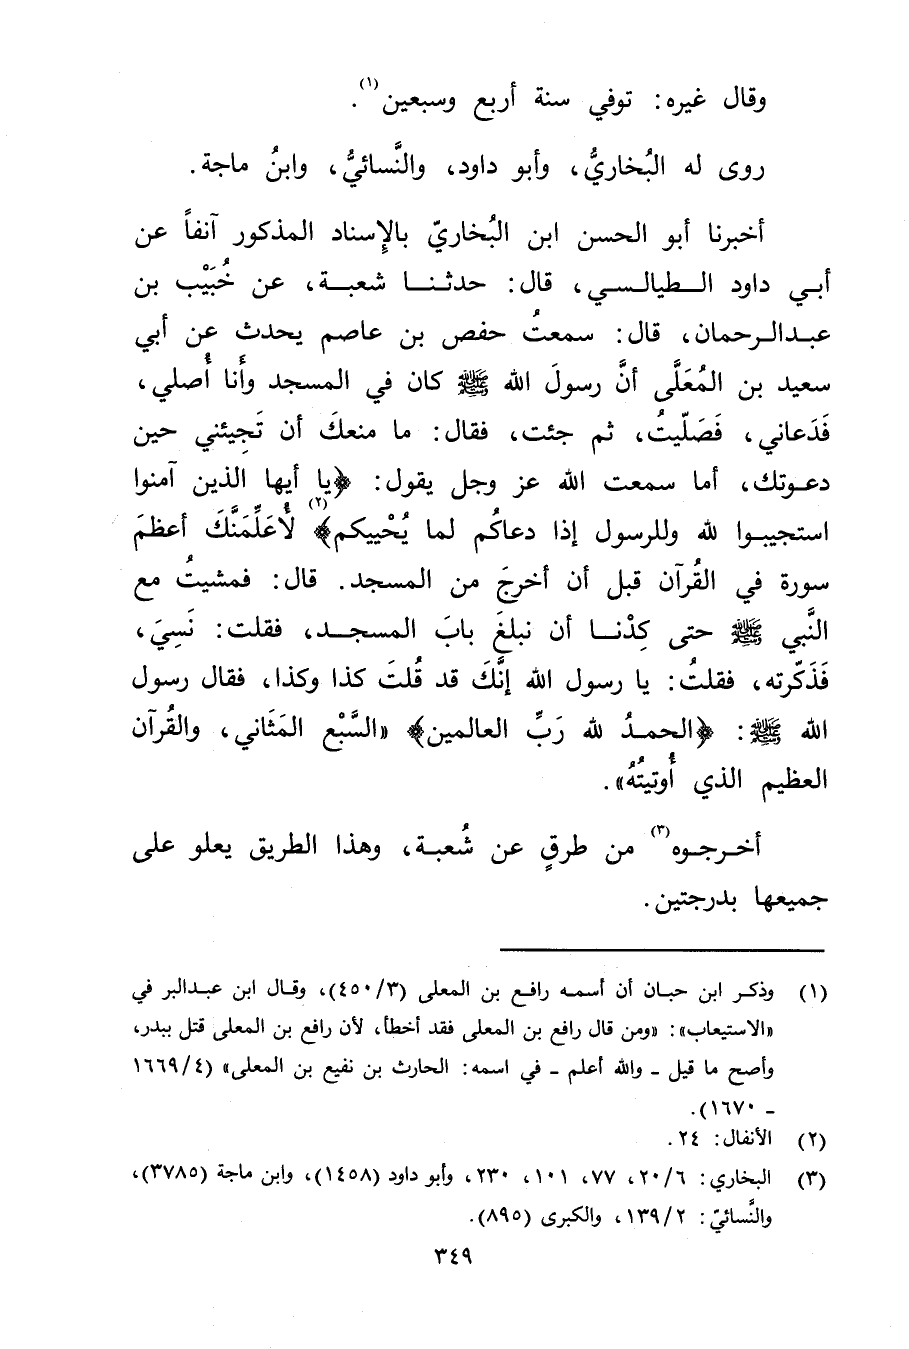 وقال غيره: توفي سنة أربع وسبعين(١).
روى له البُخاريُّ، وأبو داود، والنَّسائيُّ، وابنُ ماجة.
أخبرنا أبو الحسن ابن البُخاريّ بالإسناد المذكور آنفاً عن
أبي داود الطيالسي، قال: حدثنا شعبة، عن خُبَيْب بن
عبدالرحمان، قال: سمعتُ حفص بن عاصم يحدث عن أبي
سعيد بن المُعَلَّى أنَّ رسولَ الله ﷺ كان في المسجد وأنا أُصلي،
فَدَعاني، فَصَلّيتُ، ثم جئت، فقال: ما منعكَ أن تَجِيئني حين
دعوتك، أما سمعت الله عز وجل يقول: ﴿يا أيها الذين آمنوا
استجيبوا لله وللرسول إذا دعاكُم لما يُحْييكم﴾(٢) لأُعَلِّمَنَّكَ أعظمَ
سورة في القُرآن قبل أن أخرجَ من المسجد. قال: فمشيتُ مع
النَّبي ﷺ حتى كِدْنا أن نبلغَ بابَ المسجد، فقلت: نَسِيَ،
فَذَكّرته، فقلتُ: يا رسول الله إنَّكَ قد قُلتَ كذا وكذا، فقال رسول
الله ﷺ: ﴿الحمدُ لله رَبِّ العالمين﴾ «السَّبْع المَثَاني، والقُرآن
العظيم الذي أُوتيتُهُ».
أخرجوه(٣) من طرقٍ عن شُعبة، وهذا الطريق يعلو على
جميعها بدرجتين.
(١) وذكر ابن حبان أن أسمه رافع بن المعلى (٣/٤٥٠)، وقال ابن عبدالبر في
«الاستيعاب»: «ومن قال رافع بن المعلى فقد أخطأ، لأن رافع بن المعلى قتل ببدر،
وأصح ما قيل ـ والله أعلم ـ في اسمه: الحارث بن نفيع بن المعلى» (٤/١٦٦٩
ـ ١٦٧٠).
(٢) الأنفال: ٢٤.
(٣) البخاري: ٦/٢٠، ٧٧، ١٠١، ٢٣٠، وأبو داود (١٤٥٨)، وابن ماجة (٣٧٨٥)،
والنَّسائيّ: ٢/١٣٩، والكبرى (٨٩٥).
٣٤٩